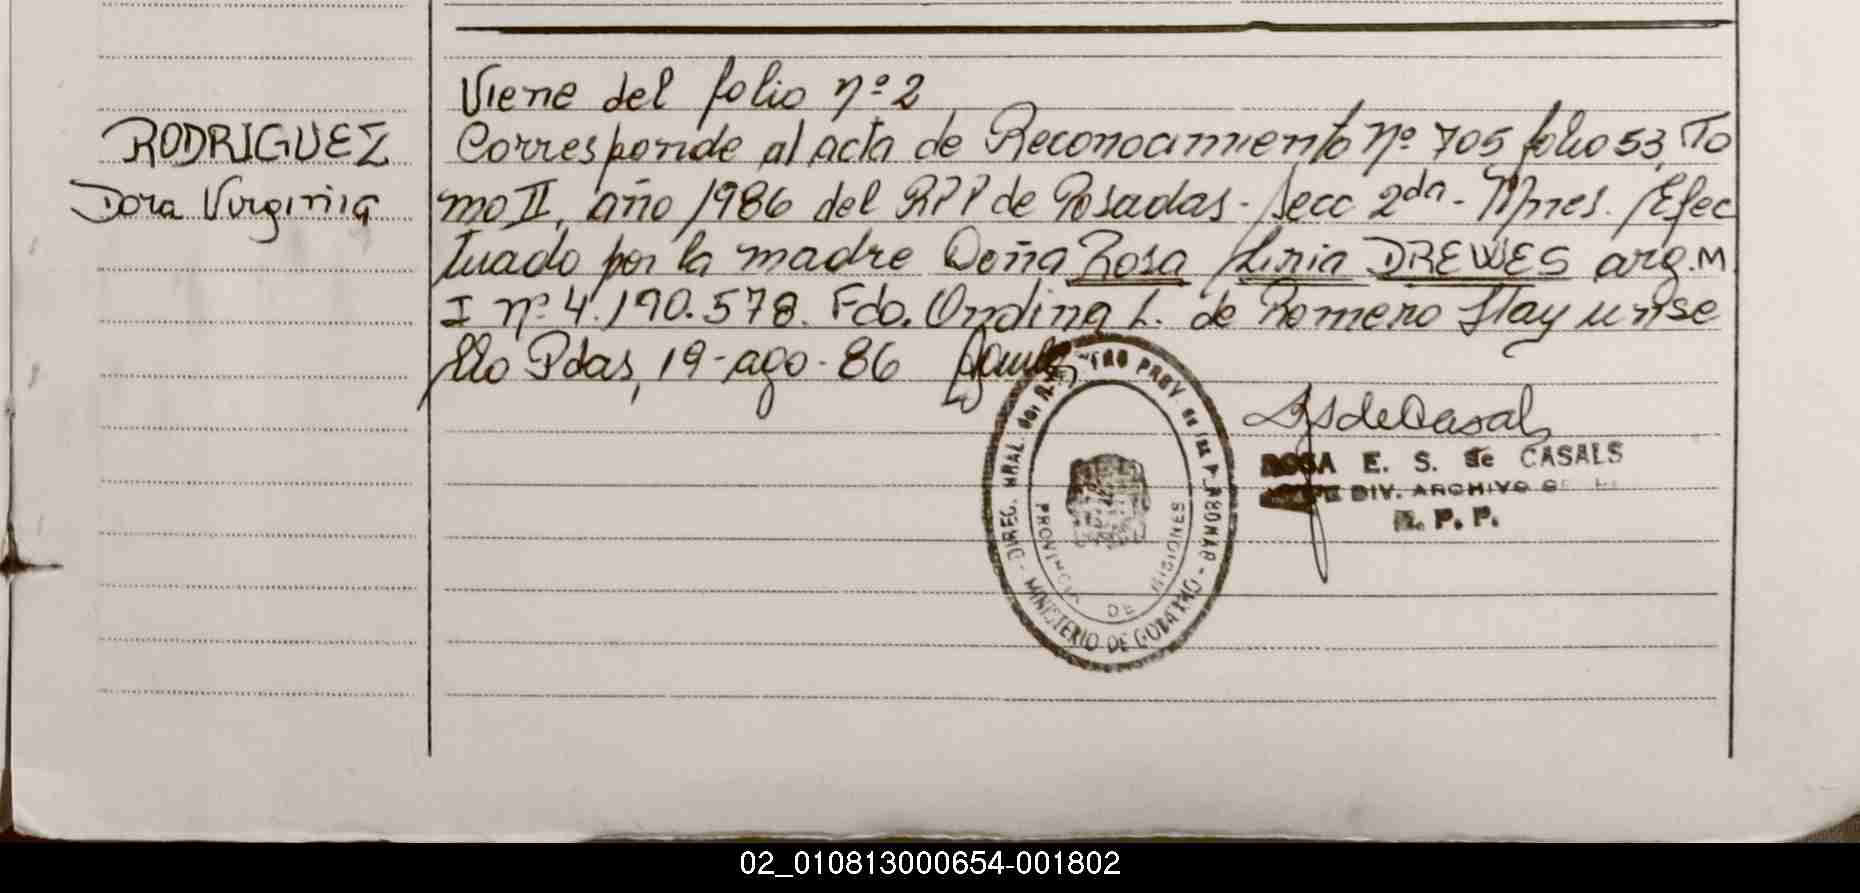 Viene del folio nº 2
RODRIGUEZ
Dora Virginia
Corresponde al acta de Reconocimiento Nº 705 folio 53, To
mo II, año 1986 del RPP de Posadas - Secc 2da - Mnes. Efec
tuado por la madre Doña Rosa Liria DREWES arg. M
I nº 4.190.578. Fdo. Ondina L. de Romero Hay un se
llo Pdas, 19-ago-86
DIREC. GRAL. del PROV. de las PERSONAS - MINISTERIO DE GOBIERNO -
PROVINCIA DE MISIONES
RSdeCasals
ROSA E. S. de CASALS
JEFE DIV. ARCHIVO
R. P. P.
02_010813000654-001802